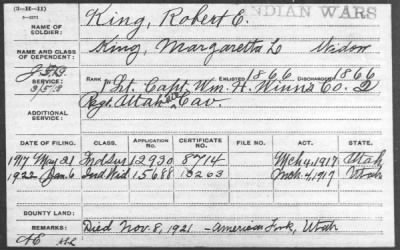 (3-2E-KK)
3-2571
INDIAN WARS
NAME OF SOLDIER: King, Robert E.
NAME AND CLASS OF DEPENDENT: King, Margaretta L Widow
SERVICE: RANK IN 1 Lt. Capt. Wm. H. Winn's Co. D ENLISTED 1866 DISCHARGED 1866
Regt. Utah Mil Cav.
ADDITIONAL SERVICE:
DATE OF FILING. CLASS. APPLICATION NO. CERTIFICATE NO. FILE: ACT. STATE.
1917 May 21 Ind Sur 12930 8714 Mch 4, 1917 Utah
1922 Jan. 6 Ind Wid 15688 10263 Mch. 4, 1917 Utah
BOUNTY LAND:
REMARKS: Died Nov. 8, 1921 - American Fork, Utah